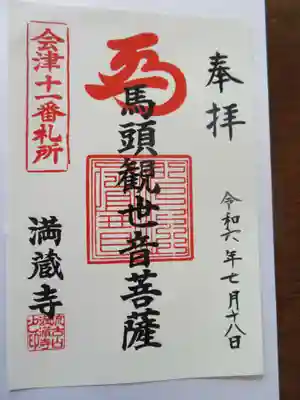 奉拝
令和六年七月十八日
馬頭観世音菩薩
会津十一番札所
満蔵寺